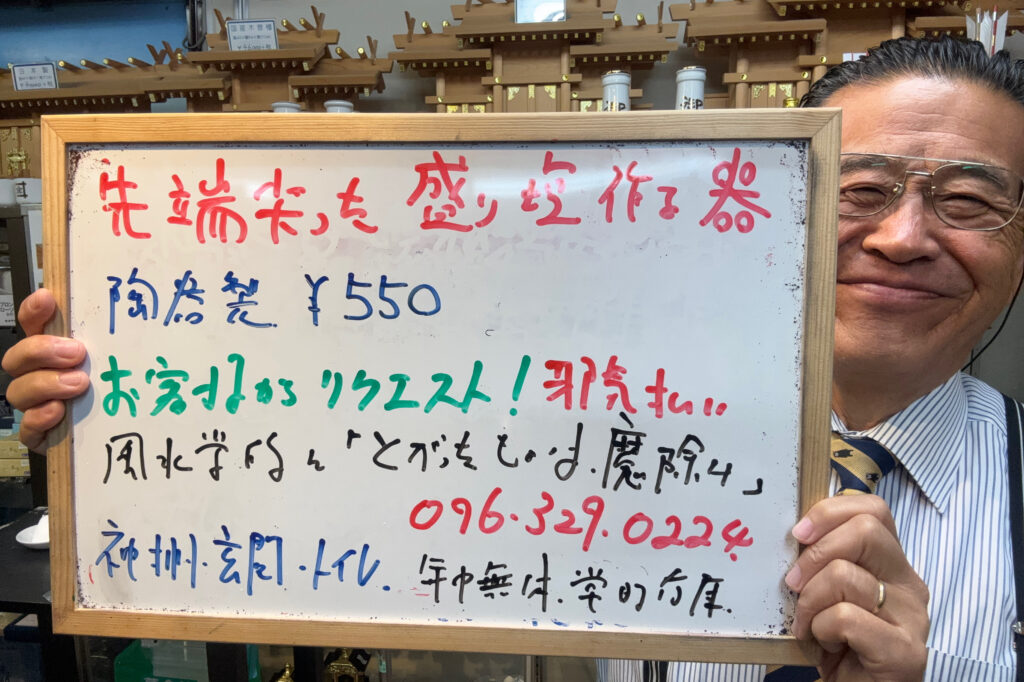 国産木曽檜
日本製
先端尖った 盛り塩 作る 器
陶器製. ¥550
お客様から リクエスト! 邪気払い
風水学的に「とがったものは、魔除け」
096.329.0224
神棚・玄関・トイレ.
年中無休.常時在庫.